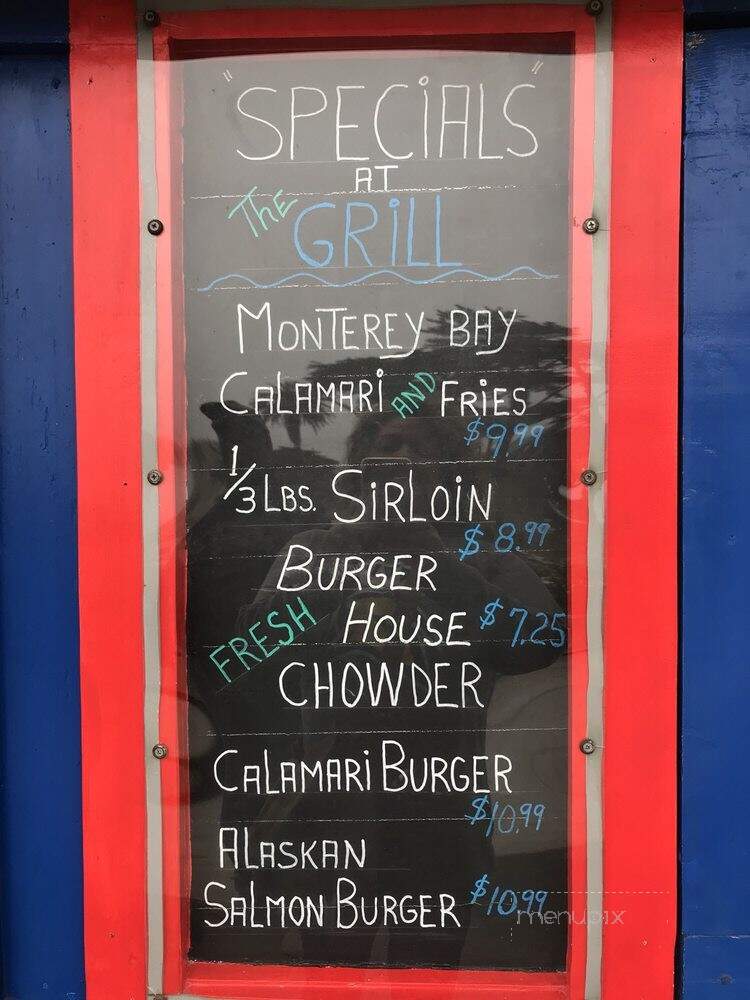 "SPECiALS"
AT
The GRiLL
MONTEREY BAY
CALAMARi AND FRiES
$9.99
1/3 LBS. SiRLOiN
$8.99
BURGER
FRESH HOUSE $7.25
CHOWDER
CALAMARi BURGER
$10.99
ALASKAN
SALMON BURGER $10.99
menupix